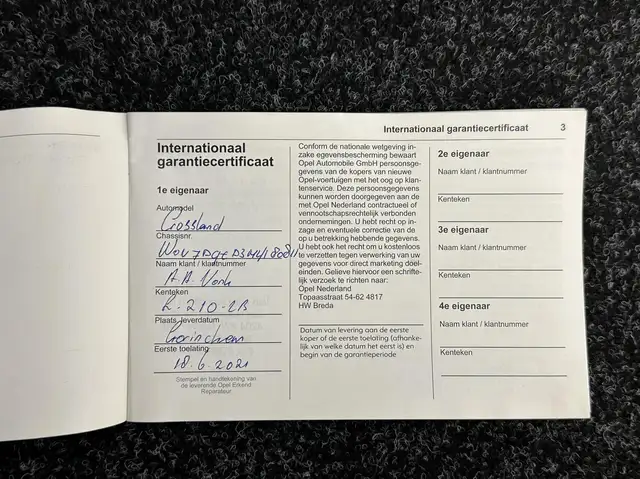 Internationaal garantiecertificaat 3
Internationaal
garantiecertificaat
1e eigenaar
Automodel
Crossland
Chassisnr.
Naam klant / klantnummer
A.A. Vonk
Kenteken
Plaats, leverdatum
Gorinchem
Eerste toelating
18.6.2021
Stempel en handtekening van
de leverende Opel Erkend
Reparateur
Conform de nationale wetgeving in-
zake egevensbescherming bewaart
Opel Automobile GmbH persoonsge-
gevens van de kopers van nieuwe
Opel-voertuigen met het oog op klan-
tenservice. Deze persoonsgegevens
kunnen worden doorgegeven aan de
met Opel Nederland contractueel of
vennootschapsrechtelijk verbonden
ondernemingen. U hebt recht op in-
zage en eventuele correctie van de
op u betrekking hebbende gegevens.
U hebt ook het recht om u kosteloos
te verzetten tegen verwerking van uw
gegevens voor direct marketing doel-
einden. Gelieve hiervoor een schrifte-
lijk verzoek te richten naar:
Opel Nederland
Topaasstraat 54-62 4817
HW Breda
Datum van levering aan de eerste
koper of de eerste toelating (afhanke-
lijk van welke datum het eerst is) en
begin van de garantieperiode
2e eigenaar
Naam klant / klantnummer
Kenteken
3e eigenaar
Naam klant / klantnummer
Kenteken
4e eigenaar
Naam klant / klantnummer
Kenteken